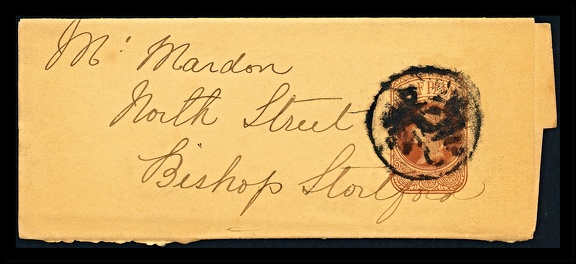 Mr Mardon
North Street
Bishop Stortford